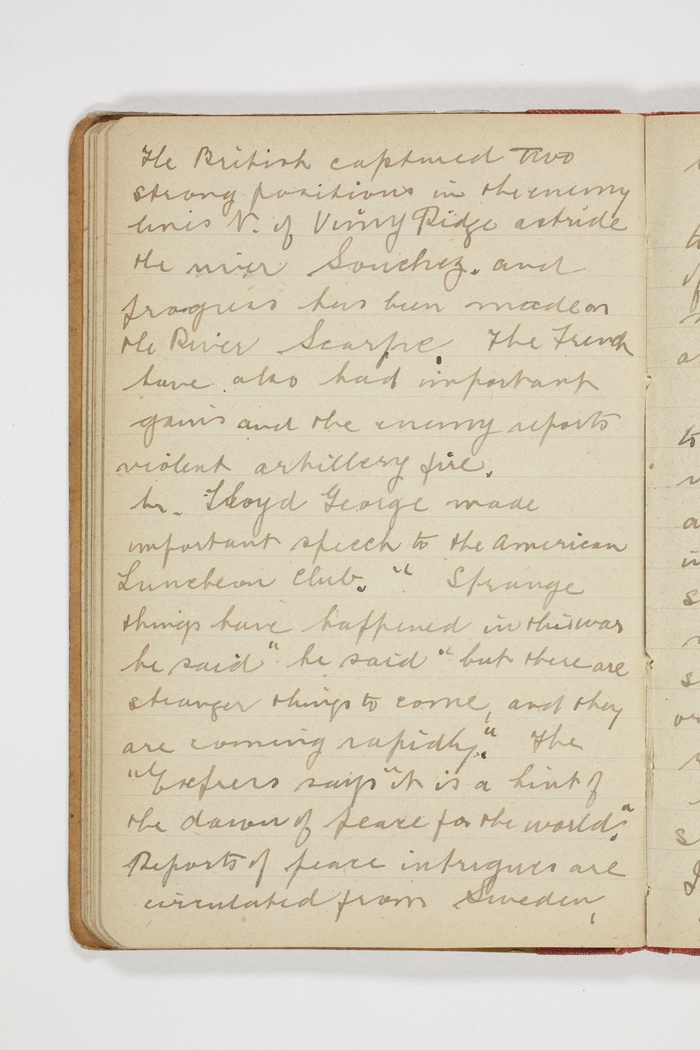 The British captured two
strong positions in the enemy
lines N. of Vimy Ridge astride
the river Souchez. and
progress has been made on
the River Scarpe. The French
have also had important
gains and the enemy reports
violent artillery fire.
Mr. Lloyd George made
important speech to the American
Luncheon Club. " Strange
things have happened in this war
he said" he said "but there are
stranger things to come, and they
are coming rapidly." The
" says "it is a hint of
the dawn of peace for the world."
Reports of peace intrigues are
circulated from Sweden,